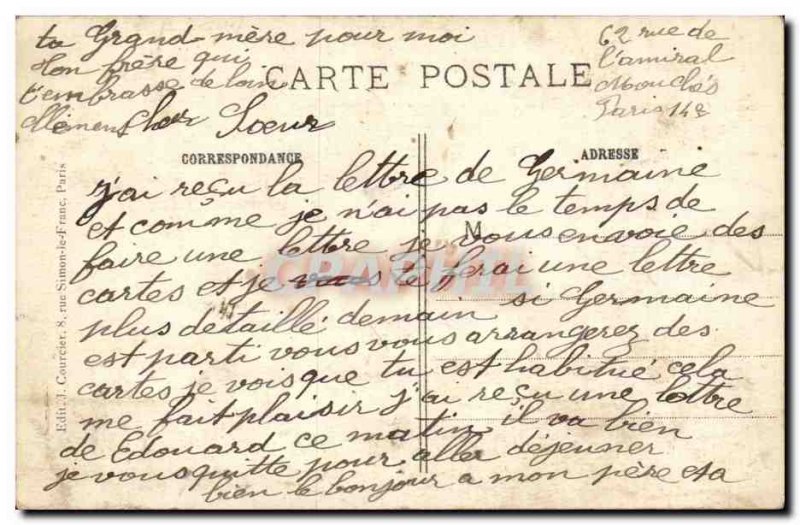 ta Grand mère pour moi
Ton frère qui
t'embrasse de loin
62 rue de
l'amiral
Mouchés
Paris 14e
CARTE POSTALE
Cher Soeur
CORRESPONDANCE
ADRESSE
j'ai reçu la lettre de Germaine
et comme je n'ai pas le temps de
M
faire une lettre je vous envoie des
cartes et je vous te ferai une lettre
plus détaillé demain si Germaine
est parti vous vous arrangerez des
cartes je vois que tu est habitué cela
me fait plaisir j'ai reçu une lettre
de Edouard ce matin il va bien
je vous quitte pour aller déjeuner
bien le bonjour a mon père et a
Edit. J. Courcier, 8, rue Simon-le-Franc, Paris